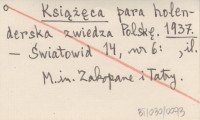 Książęca para holen-
derska zwiedza Polskę. 1937.
— Światowid 14, nr 6: , il.
M.in. Zakopane i Tatry.